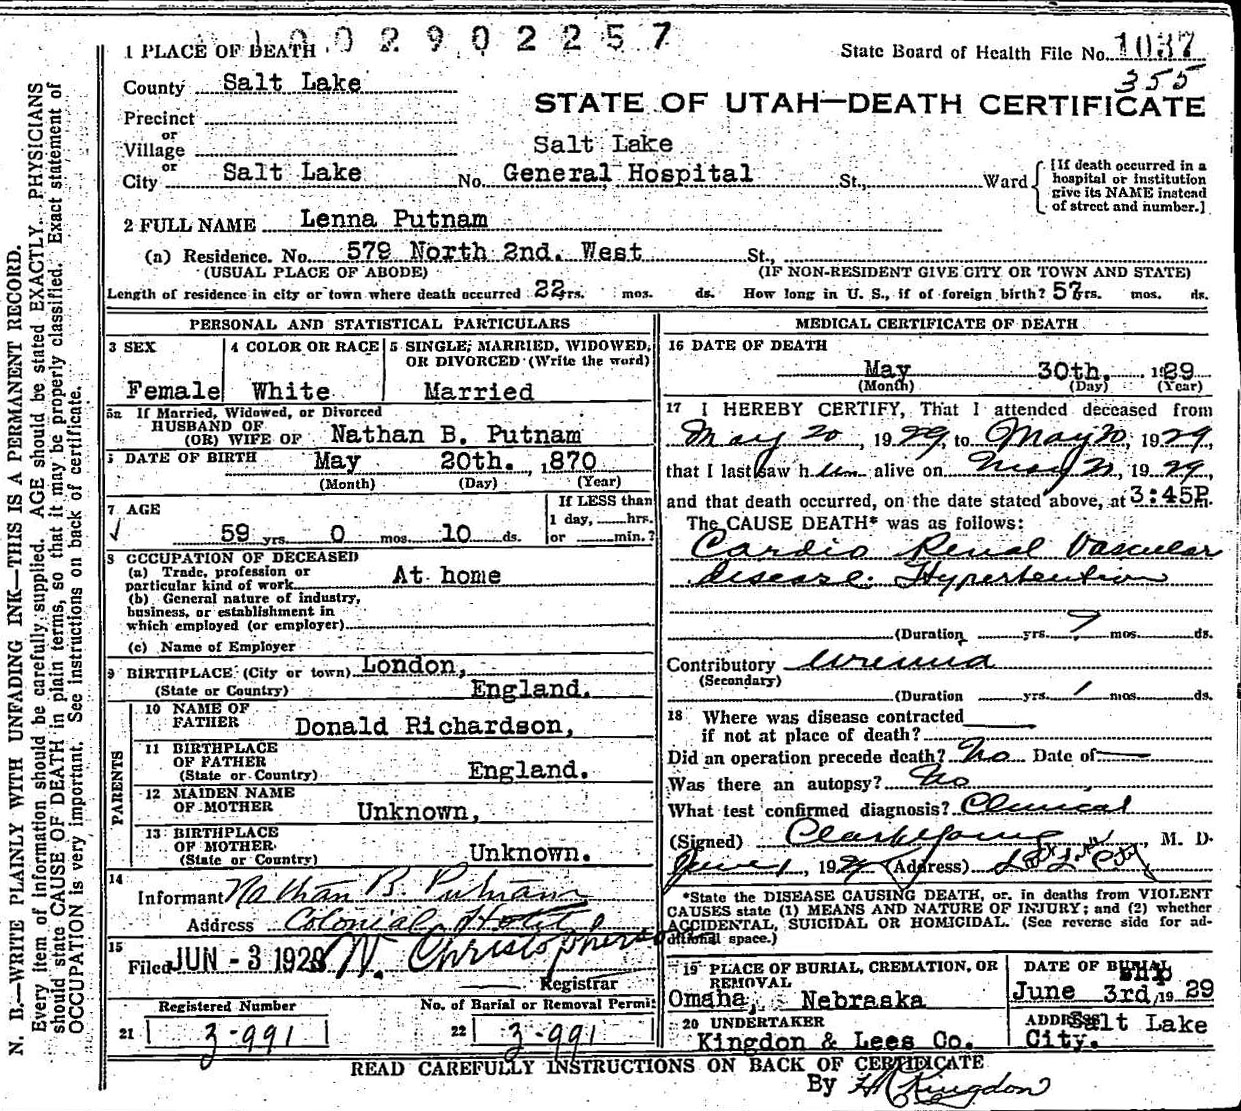 1002902257
1 PLACE OF DEATH
State Board of Health File No. 1037
355
County Salt Lake
STATE OF UTAH—DEATH CERTIFICATE
Precinct
or
Village
or
Salt Lake
City Salt Lake No. General Hospital St., Ward
[If death occurred in a hospital or institution give its NAME instead of street and number.]
2 FULL NAME Lenna Putnam
(a) Residence. No. 579 North 2nd. West St.,
(USUAL PLACE OF ABODE) (IF NON-RESIDENT GIVE CITY OR TOWN AND STATE)
Length of residence in city or town where death occurred 22 yrs. mos. ds. How long in U. S., if of foreign birth? 57 yrs. mos. ds.
PERSONAL AND STATISTICAL PARTICULARS
3 SEX
Female
4 COLOR OR RACE
White
5 SINGLE, MARRIED, WIDOWED,
OR DIVORCED (Write the word)
Married
5a If Married, Widowed, or Divorced
HUSBAND OF
(OR) WIFE OF Nathan B. Putnam
DATE OF BIRTH May 20th. 1870
(Month) (Day) (Year)
7 AGE
59 yrs. 0 mos. 10 ds.
If LESS than
1 day, hrs.
or min.?
8 OCCUPATION OF DECEASED
(a) Trade, profession or
particular kind of work At home
(b) General nature of industry,
business, or establishment in
which employed (or employer)
(c) Name of Employer
9 BIRTHPLACE (City or town) London,
(State or Country) England.
PARENTS
10 NAME OF
FATHER Donald Richardson,
11 BIRTHPLACE
OF FATHER
(State or Country) England.
12 MAIDEN NAME
OF MOTHER Unknown,
13 BIRTHPLACE
OF MOTHER
(State or Country) Unknown.
14
Informant Nathan B. Putnam
Address Colonial Hotel
15
Filed JUN - 3 1929 N. Christopherson
Registrar
Registered Number No. of Burial or Removal Permit
21 3-991 22 3-991
MEDICAL CERTIFICATE OF DEATH
16 DATE OF DEATH
May 30th. 1929
(Month) (Day) (Year)
17 I HEREBY CERTIFY, That I attended deceased from
May 20, 1929, to May 30, 1929,
that I last saw h er alive on May, 1929,
and that death occurred, on the date stated above, at 3:45P.
The CAUSE DEATH* was as follows:
Cardio Renal Vascular
disease. Hypertention
(Duration yrs. 7 mos. ds.
Contributory uremia
(Secondary)
(Duration yrs. 1 mos. ds.
18 Where was disease contracted
if not at place of death?
Did an operation precede death? No Date of
Was there an autopsy? No
What test confirmed diagnosis? Clinical
(Signed) Clark Young, M. D.
June 1, 1929 (Address) S. L. City
*State the DISEASE CAUSING DEATH, or, in deaths from VIOLENT
CAUSES state (1) MEANS AND NATURE OF INJURY; and (2) whether
ACCIDENTAL, SUICIDAL OR HOMICIDAL. (See reverse side for ad-
ditional space.)
19 PLACE OF BURIAL, CREMATION, OR
REMOVAL
Omaha, Nebraska
DATE OF BURIAL
Ship
June 3rd, 1929
20 UNDERTAKER
Kingdon & Lees Co.
ADDRESS Salt Lake
City.
READ CAREFULLY INSTRUCTIONS ON BACK OF CERTIFICATE
By Kingdon
N. B.—WRITE PLAINLY WITH UNFADING INK—THIS IS A PERMANENT RECORD.
Every item of information should be carefully supplied. AGE should be stated EXACTLY. PHYSICIANS
should state CAUSE OF DEATH in plain terms, so that it may be properly classified. Exact statement of
OCCUPATION is very important. See instructions on back of certificate.